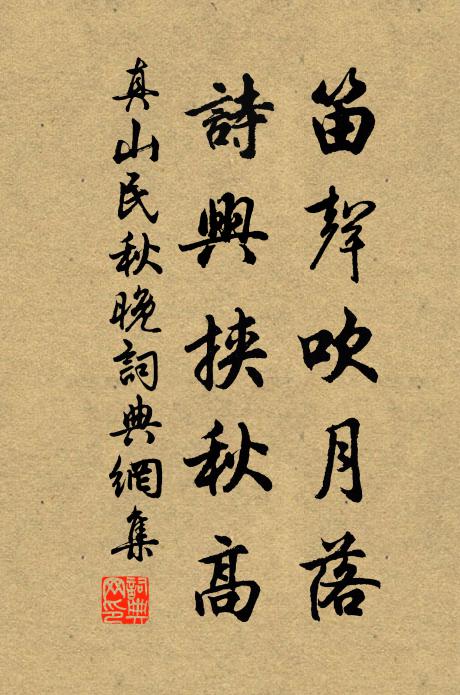 笛聲吹月落
詩興挾秋高
真山民秋晚詞典網集
詞典
网印